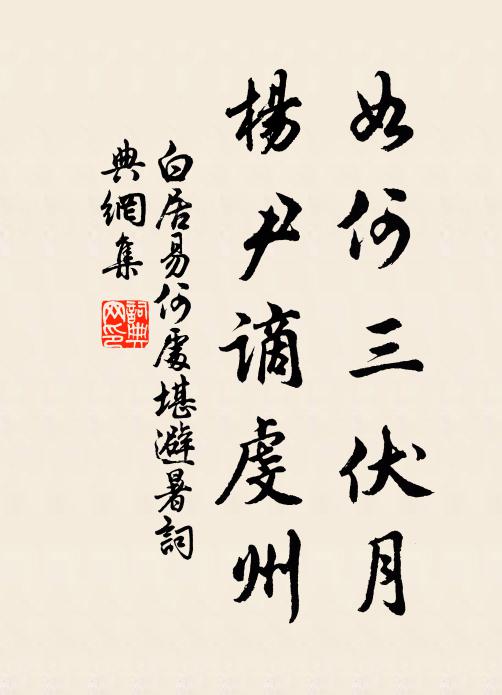 如何三伏月
楊尹謫虔州
白居易何處堪避暑詞
典網集
詞典
网印